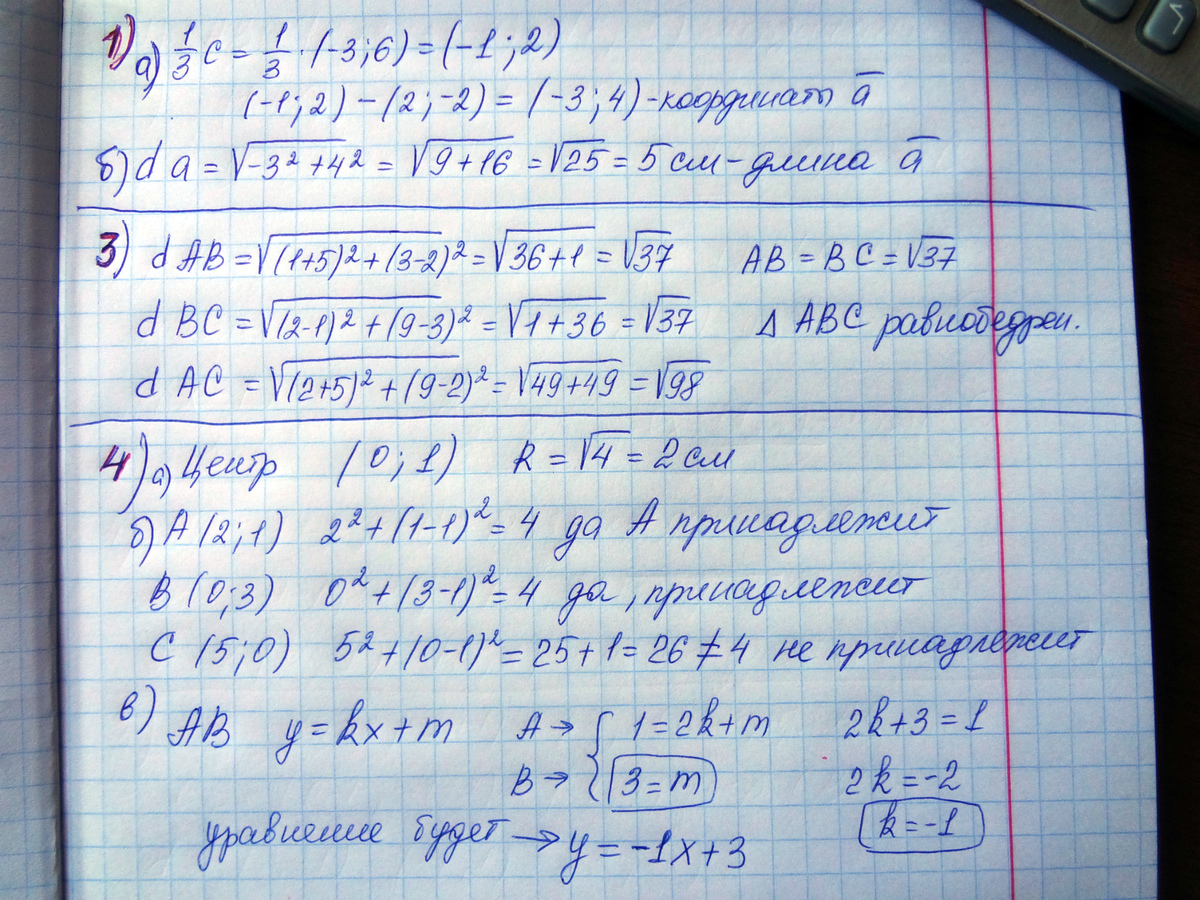 1) а) 1/3 c = 1/3 · (-3; 6) = (-1; 2)
(-1; 2) - (2; -2) = (-3; 4) - координаты a̅
б) d a = √-3² + 4² = √9 + 16 = √25 = 5 см - длина a̅
3) d AB = √(1+5)² + (3-2)² = √36+1 = √37 AB = BC = √37
d BC = √(2-1)² + (9-3)² = √1 + 36 = √37 Δ ABC равнобедрен.
d AC = √(2+5)² + (9-2)² = √49+49 = √98
4) а) Центр (0; 1) R = √4 = 2 см
б) A (2; 1) 2² + (1-1)² = 4 да A принадлежит
B (0; 3) 0² + (3-1)² = 4 да, принадлежит
C (5; 0) 5² + (0-1)² = 25 + 1 = 26 ≠ 4 не принадлежит
в) AB y = kx + m A → { 1 = 2k + m 2k + 3 = 1
B → { 3 = m 2k = -2
k = -1
уравнение будет → y = -1x + 3